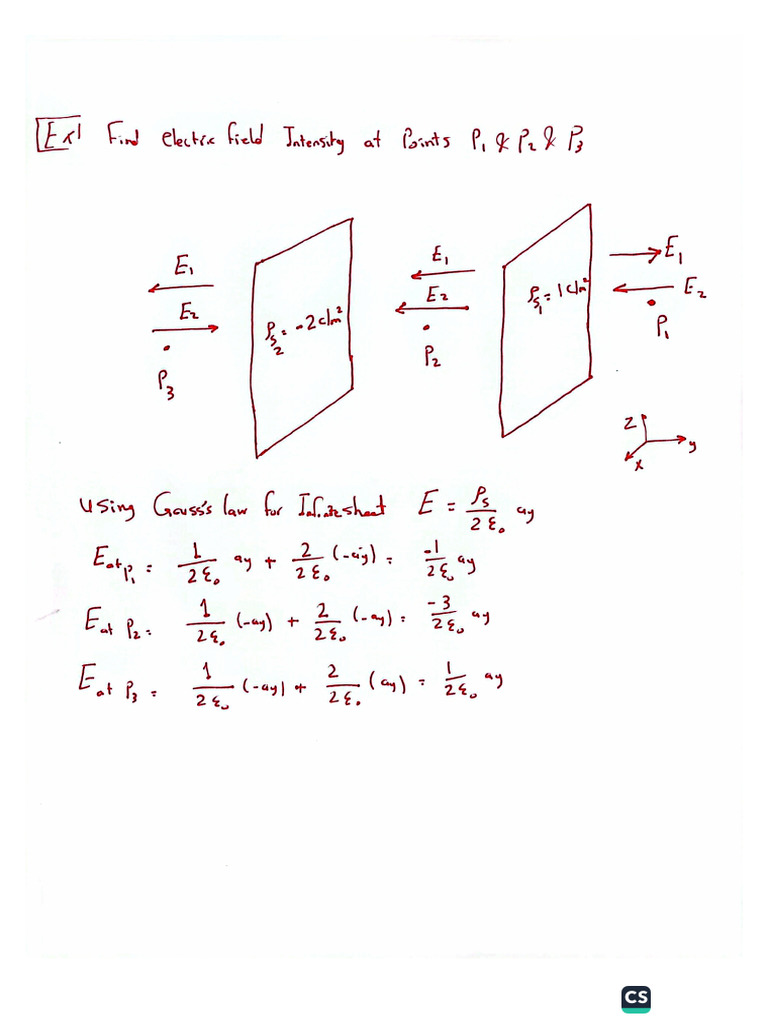 Ex1 Find electric field Intensity at Points P₁ & P₂ & P₃
E₁ E₁ E₁
E₂ E₂ E₂
ρs₂ = -2 c/m² ρs₁ = 1 c/m²
P₃ P₂ P₁
z
y
x
Using Gauss's law for Infinite sheet E = ρs/2ε₀ ay
E at P₁ = 1/2ε₀ ay + 2/2ε₀ (-ay) = -1/2ε₀ ay
E at P₂ = 1/2ε₀ (-ay) + 2/2ε₀ (-ay) = -3/2ε₀ ay
E at P₃ = 1/2ε₀ (-ay) + 2/2ε₀ (ay) = 1/2ε₀ ay
CS